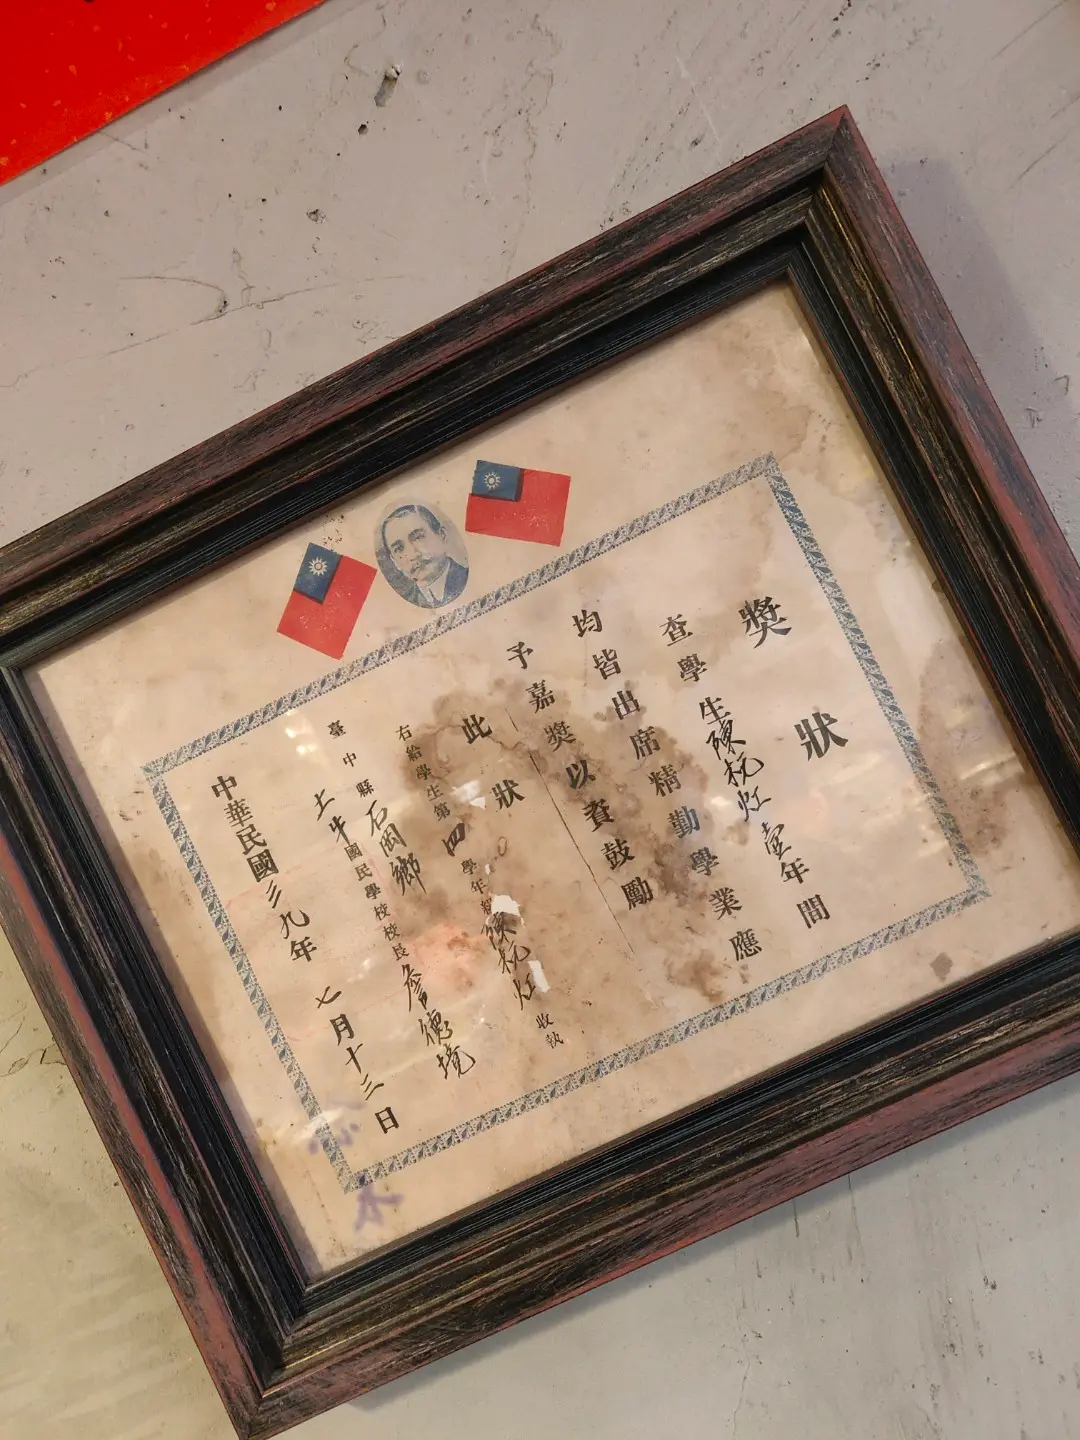 獎狀
查學生陳杭灴壹年間
均皆出席精勤學業應
予嘉獎以資鼓勵
此狀
右給學生第四學年 陳杭灴收執
臺中縣石岡鄉
土牛國民學校校長詹德境
中華民國三九年七月十三日